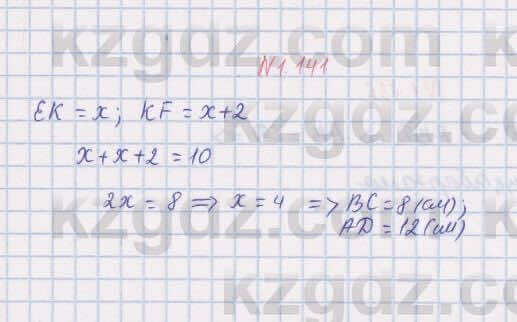 kzgdz.com
N1.141
EK = x; KF = x+2
x+x+2 = 10
2x = 8 => x = 4 => BC = 8 (см);
AD = 12 (см)
kzgdz.com
kzgdz.com
kzgdz.com